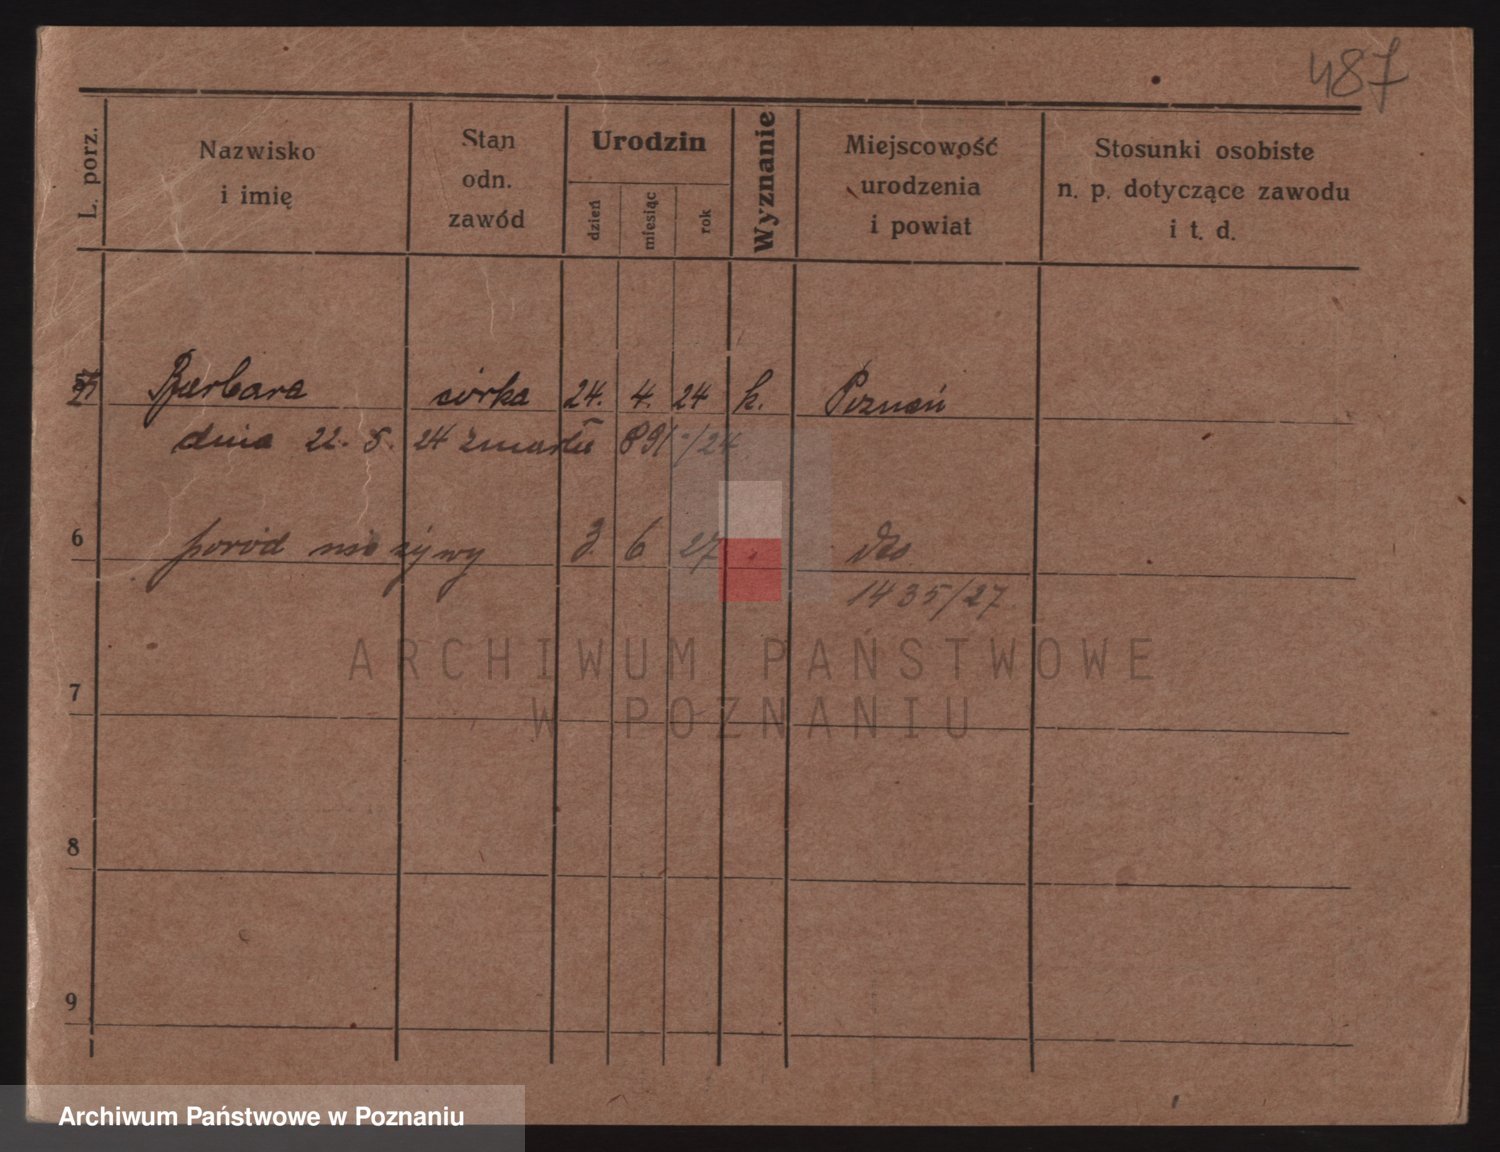 487
L. porz.
Nazwisko
i imię
Stan
odn.
zawód
Urodzin
dzień
miesiąc
rok
Wyznanie
Miejscowość
urodzenia
i powiat
Stosunki osobiste
n. p. dotyczące zawodu
i t. d.
Barbara córka 24. 4. 24 k. Poznań
dnia 22. 5. 24 zmarła 891/24
6 poród nieżywy 3 6 27 dto
1435/27
ARCHIWUM PAŃSTWOWE
W POZNANIU
7
8
9
Archiwum Państwowe w Poznaniu